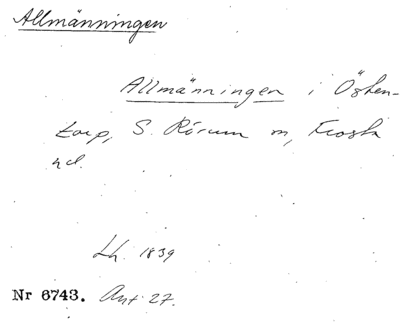 Allmänningen
Allmänningen i Östen-
torp, S. Rörum sn, Frosta
hd.
Lh. 1839
Nr 6743. Ant 27.